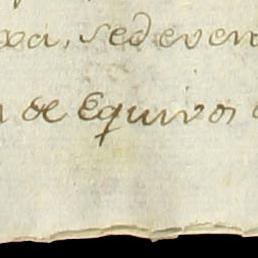 xa, se deven
de Equivos